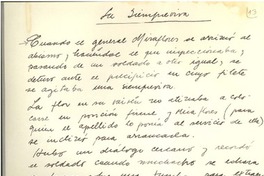 La Siempreviva
Cuando el general Miraflores se arrimó al
abismo, haciéndose el que inspeccionaba, y
pasando de un soldado a otro igual, se
detuvo ante el precipicio en cuyo filete
se agitaba una siempreviva.
La flor en su raíz no atinaba a colo-
carse en posición firme, y Miraflores (para
quien el apellido lo ponía al servicio de ella)
se inclinó para arrancarla.
Hubo un diálogo cercano y recordó
el soldado cuando muchacho se echaba